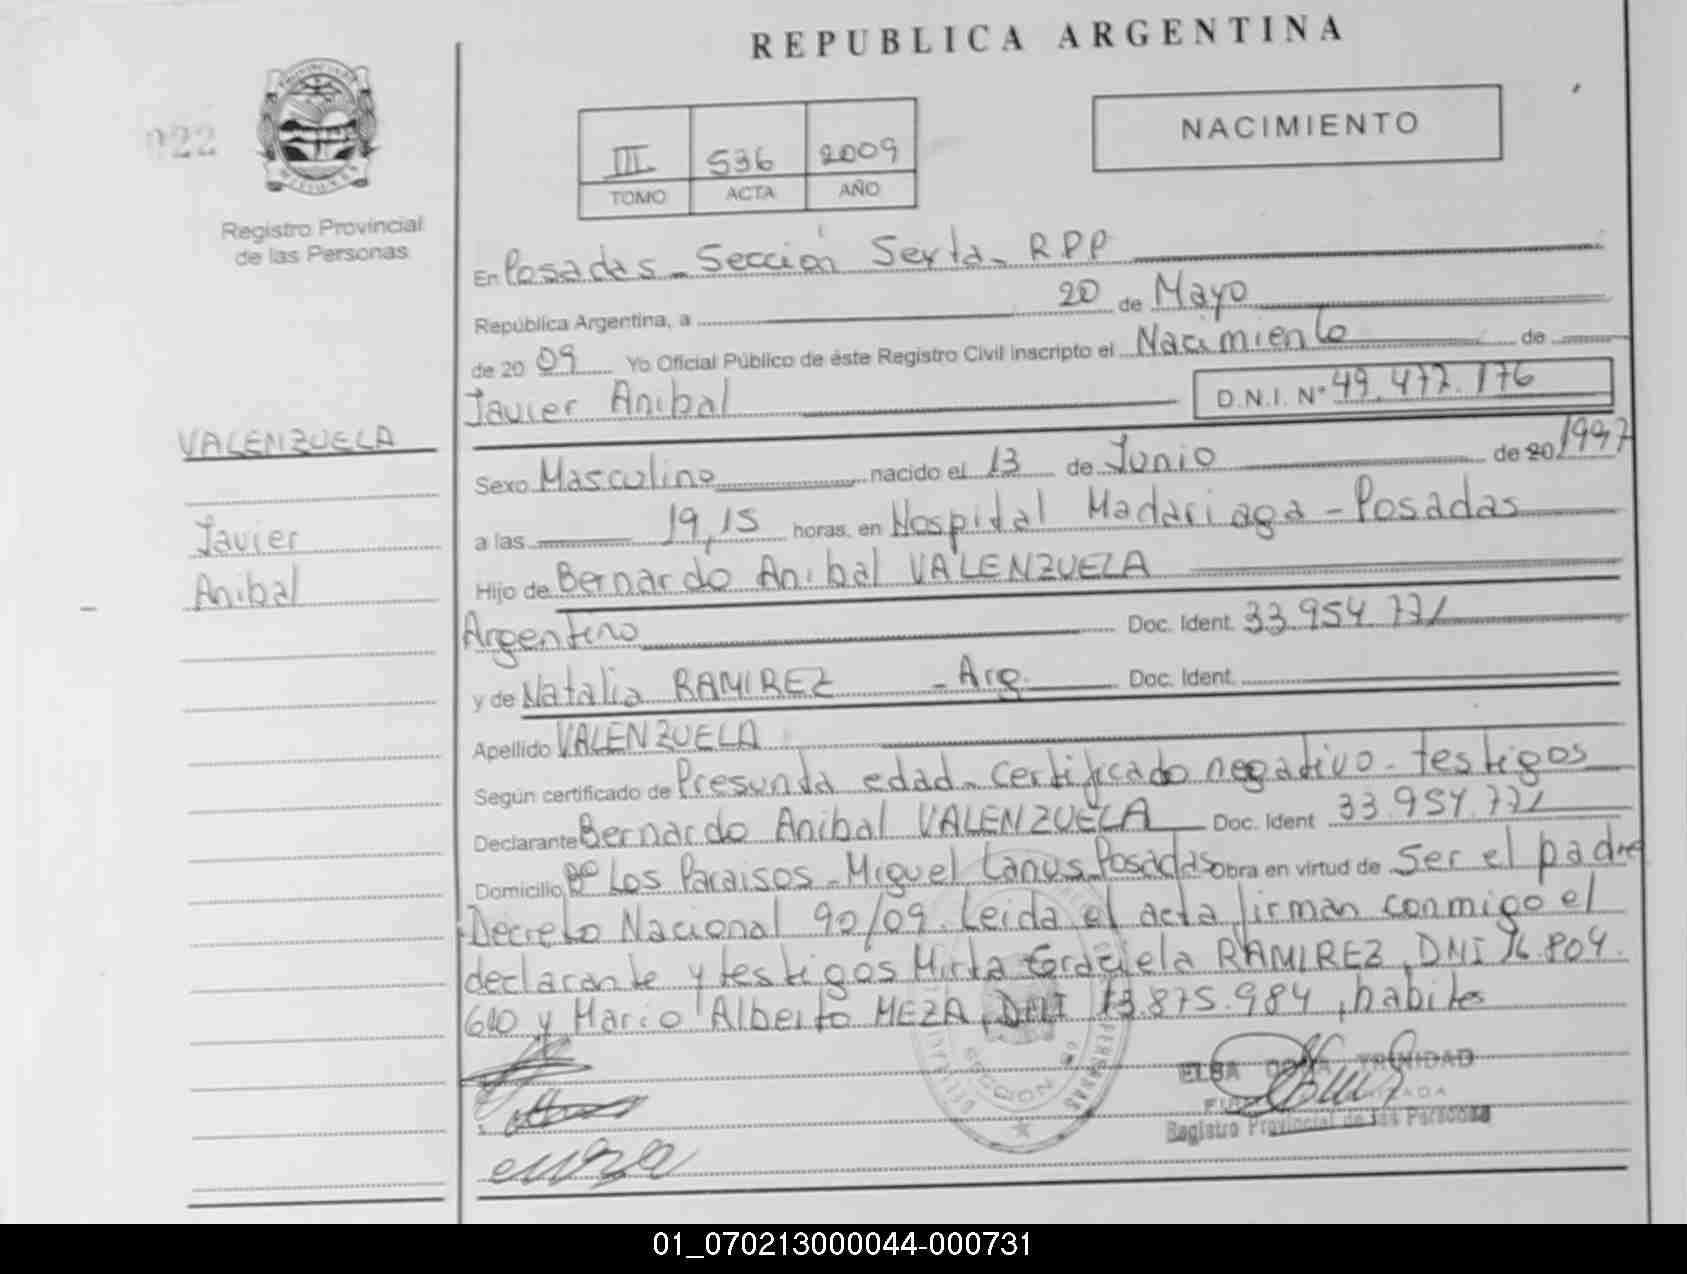 REPUBLICA ARGENTINA
022
PROVINCIA
MISIONES
Registro Provincial
de las Personas
III 536 2009
TOMO ACTA AÑO
NACIMIENTO
En Posadas - Sección Sexta - RPP
República Argentina, a 20 de Mayo
de 2009 Yo Oficial Público de éste Registro Civil inscripto el Nacimiento de
Javier Anibal D.N.I. Nº 49.477.176
VALENZUELA
Javier
Anibal
Sexo Masculino nacido el 13 de Junio de 20 1997
a las 19,15 horas, en Hospital Madariaga - Posadas
Hijo de Bernardo Anibal VALENZUELA
Argentino Doc. Ident. 33.954.771
y de Natalia RAMIREZ - Arg. Doc. Ident.
Apellido VALENZUELA
Según certificado de Presunta edad - certificado negativo - testigos
Declarante Bernardo Anibal VALENZUELA Doc. Ident 33.954.771
Domicilio Bº Los Paraisos - Miguel Lanus Posadas Obra en virtud de Ser el padre
Decreto Nacional 90/09. Leida el acta firman conmigo el
declarante y testigos Mirta RAMIREZ, DNI 16.809.
600 y Mario Alberto MEZA, DNI 13.875.984, habiles
ELSA TRINIDAD
Registro Provincial de las Personas
SECCION
01_070213000044-000731